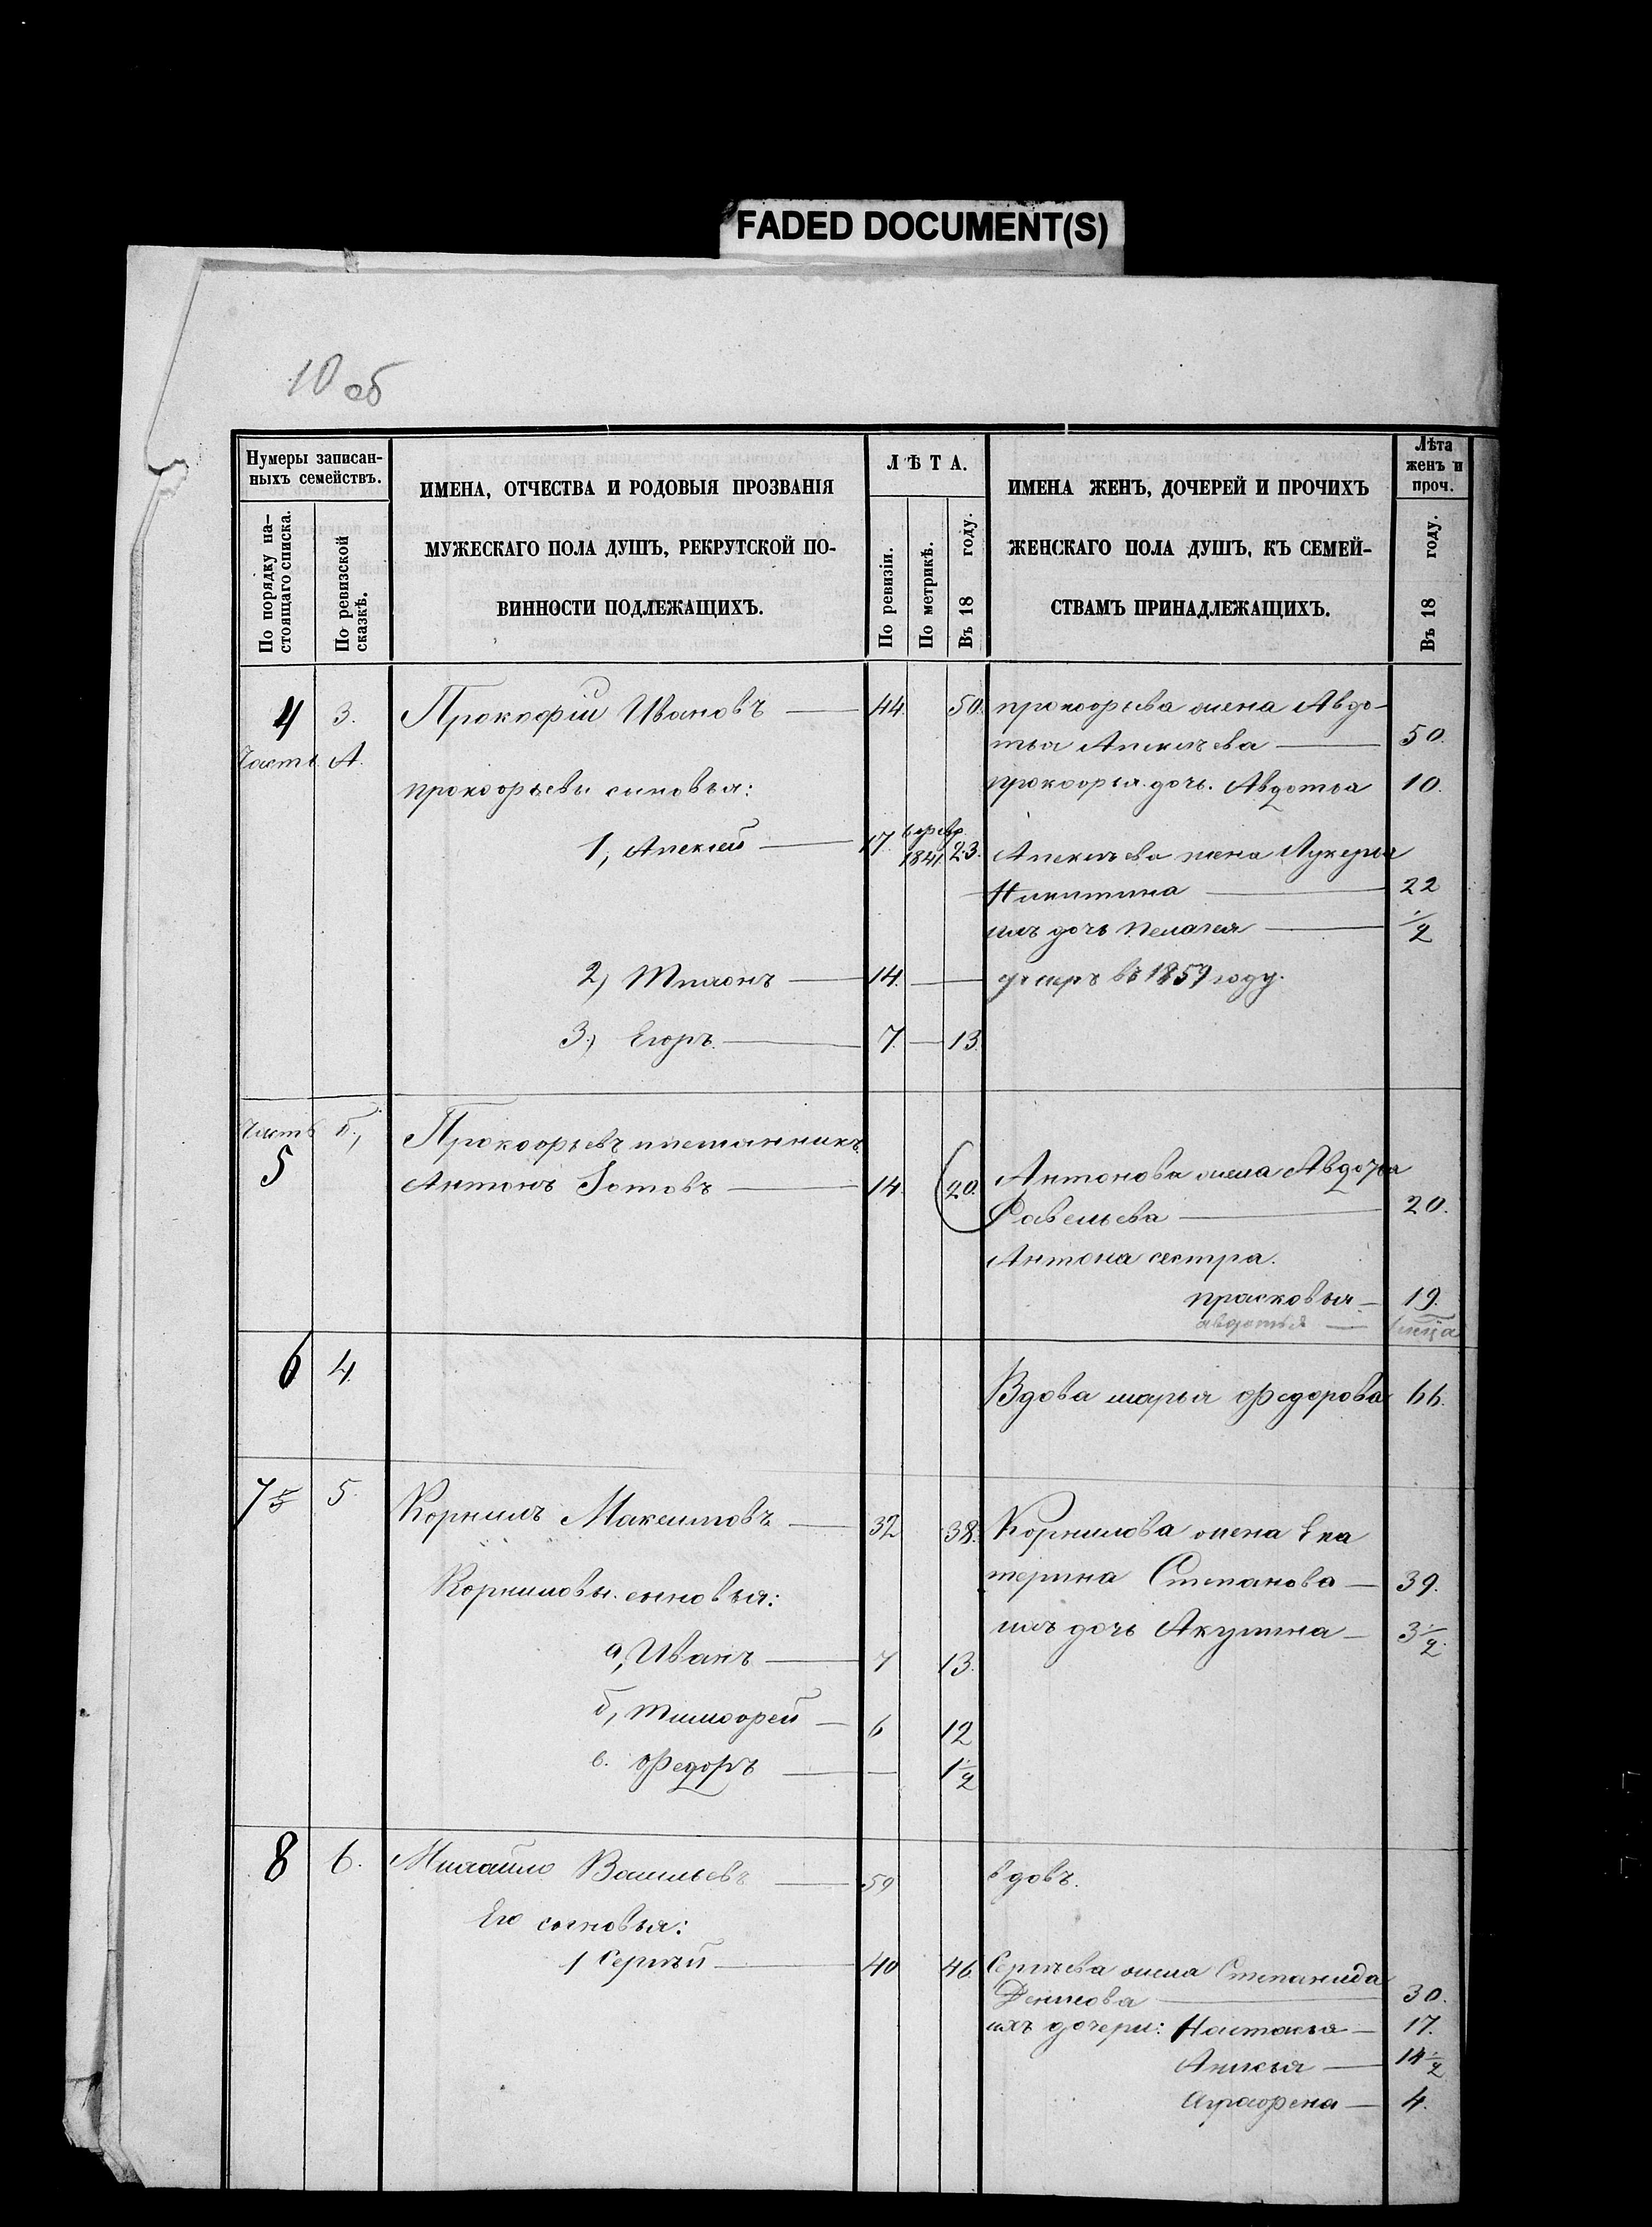 FADED DOCUMENT(S)
10 об
Нумеры записан-
ныхъ семействъ.
По порядку на-
стоящаго списка.
По ревизской
сказкѣ.
ИМЕНА, ОТЧЕСТВА И РОДОВЫЯ ПРОЗВАНІЯ
МУЖЕСКАГО ПОЛА ДУШЪ, РЕКРУТСКОЙ ПО-
ВИННОСТИ ПОДЛЕЖАЩИХЪ.
ЛѢТА.
По ревизіи.
По метрикѣ.
Въ 18 году.
ИМЕНА ЖЕНЪ, ДОЧЕРЕЙ И ПРОЧИХЪ
ЖЕНСКАГО ПОЛА ДУШЪ, КЪ СЕМЕЙ-
СТВАМЪ ПРИНАДЛЕЖАЩИХЪ.
Лѣта
женъ и
проч.
Въ 18 году.
4 3. Прокофiй Ивановъ — 44. 50. прокофьева жена Авдо-
Часть А. тья Алексѣева — 50.
прокофьевы сыновья: прокофья дочь. Авдотья 10.
1, Алексей — 17. 6 февр.
1841 23. Алексѣева жена Лукерья
Никитина — 22
ихъ дочь Пелагея — 1/2
2) Тихонъ — 14. — умеръ въ 1859 году.
3.) Егоръ. — 7. — 13.
Часть б, Прокофьевъ племянникъ
5 Антонъ Зотовъ — 14. 20. Антонова жена Авдотья
Савельева — 20.
Антона сестра.
прасковья — 19.
авдотья —
6 4. Вдова марья Федорова 66.
7 5 5. Корнилъ Максимовъ — 32 38. Корнилова жена Ека
терина Степанова — 39.
Корниловы. сыновья:
ихъ дочь Акулина — 3 1/2.
а, Иванъ — 7 13.
б, тимофей — 6 12
в. Федоръ — — 1 1/2
8 6. Михайло Васильевъ — 59 вдовъ.
Его сыновья:
1 Сергѣй — 40 46. Сергѣева жена Степанида
Денисова — 30.
ихъ дочери: Настасья — 17.
Анисья — 14 1/2
Аграфена — 4.